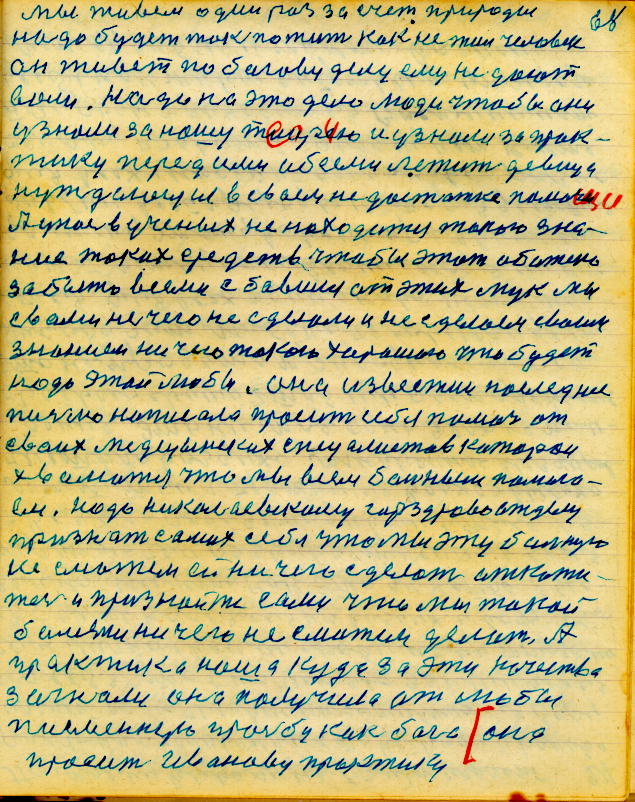 68
мы живем один раз за счет природы
надо будет так пожит как не жил человек
он живет по багову делу ему не дают
воли. Надо на это дело люди чтобы они
узнали за нашу теарею и узнали за прак-
тику перед ими обеими лежит девица
нуждающися в своем недостатке помощи
А у нас в ученых не находится такого зна-
ние таких средств чтобы этот обажено
забыто всеми сбавил от этих мук мы
свами нечего не сделали и не сделаем своим
знанием ни чего такого харошаго что будет
надо этой Любы. она известии последнее
писмо написала просит себя помоч от
своих медецынских специалистов которои
хвалются что мы всем больным помога-
ем. надо николаевскому горздровотделу
признат самих себя что мы эту больную
не сможем ей ни чего сделат откажи-
тес и признайте сами что мы такой
болезни ничего не сможем делат. А
практика наша куда за эти качества
загнали она получила от Любы
писменную прозбу как бога [она
просит Иванову практику